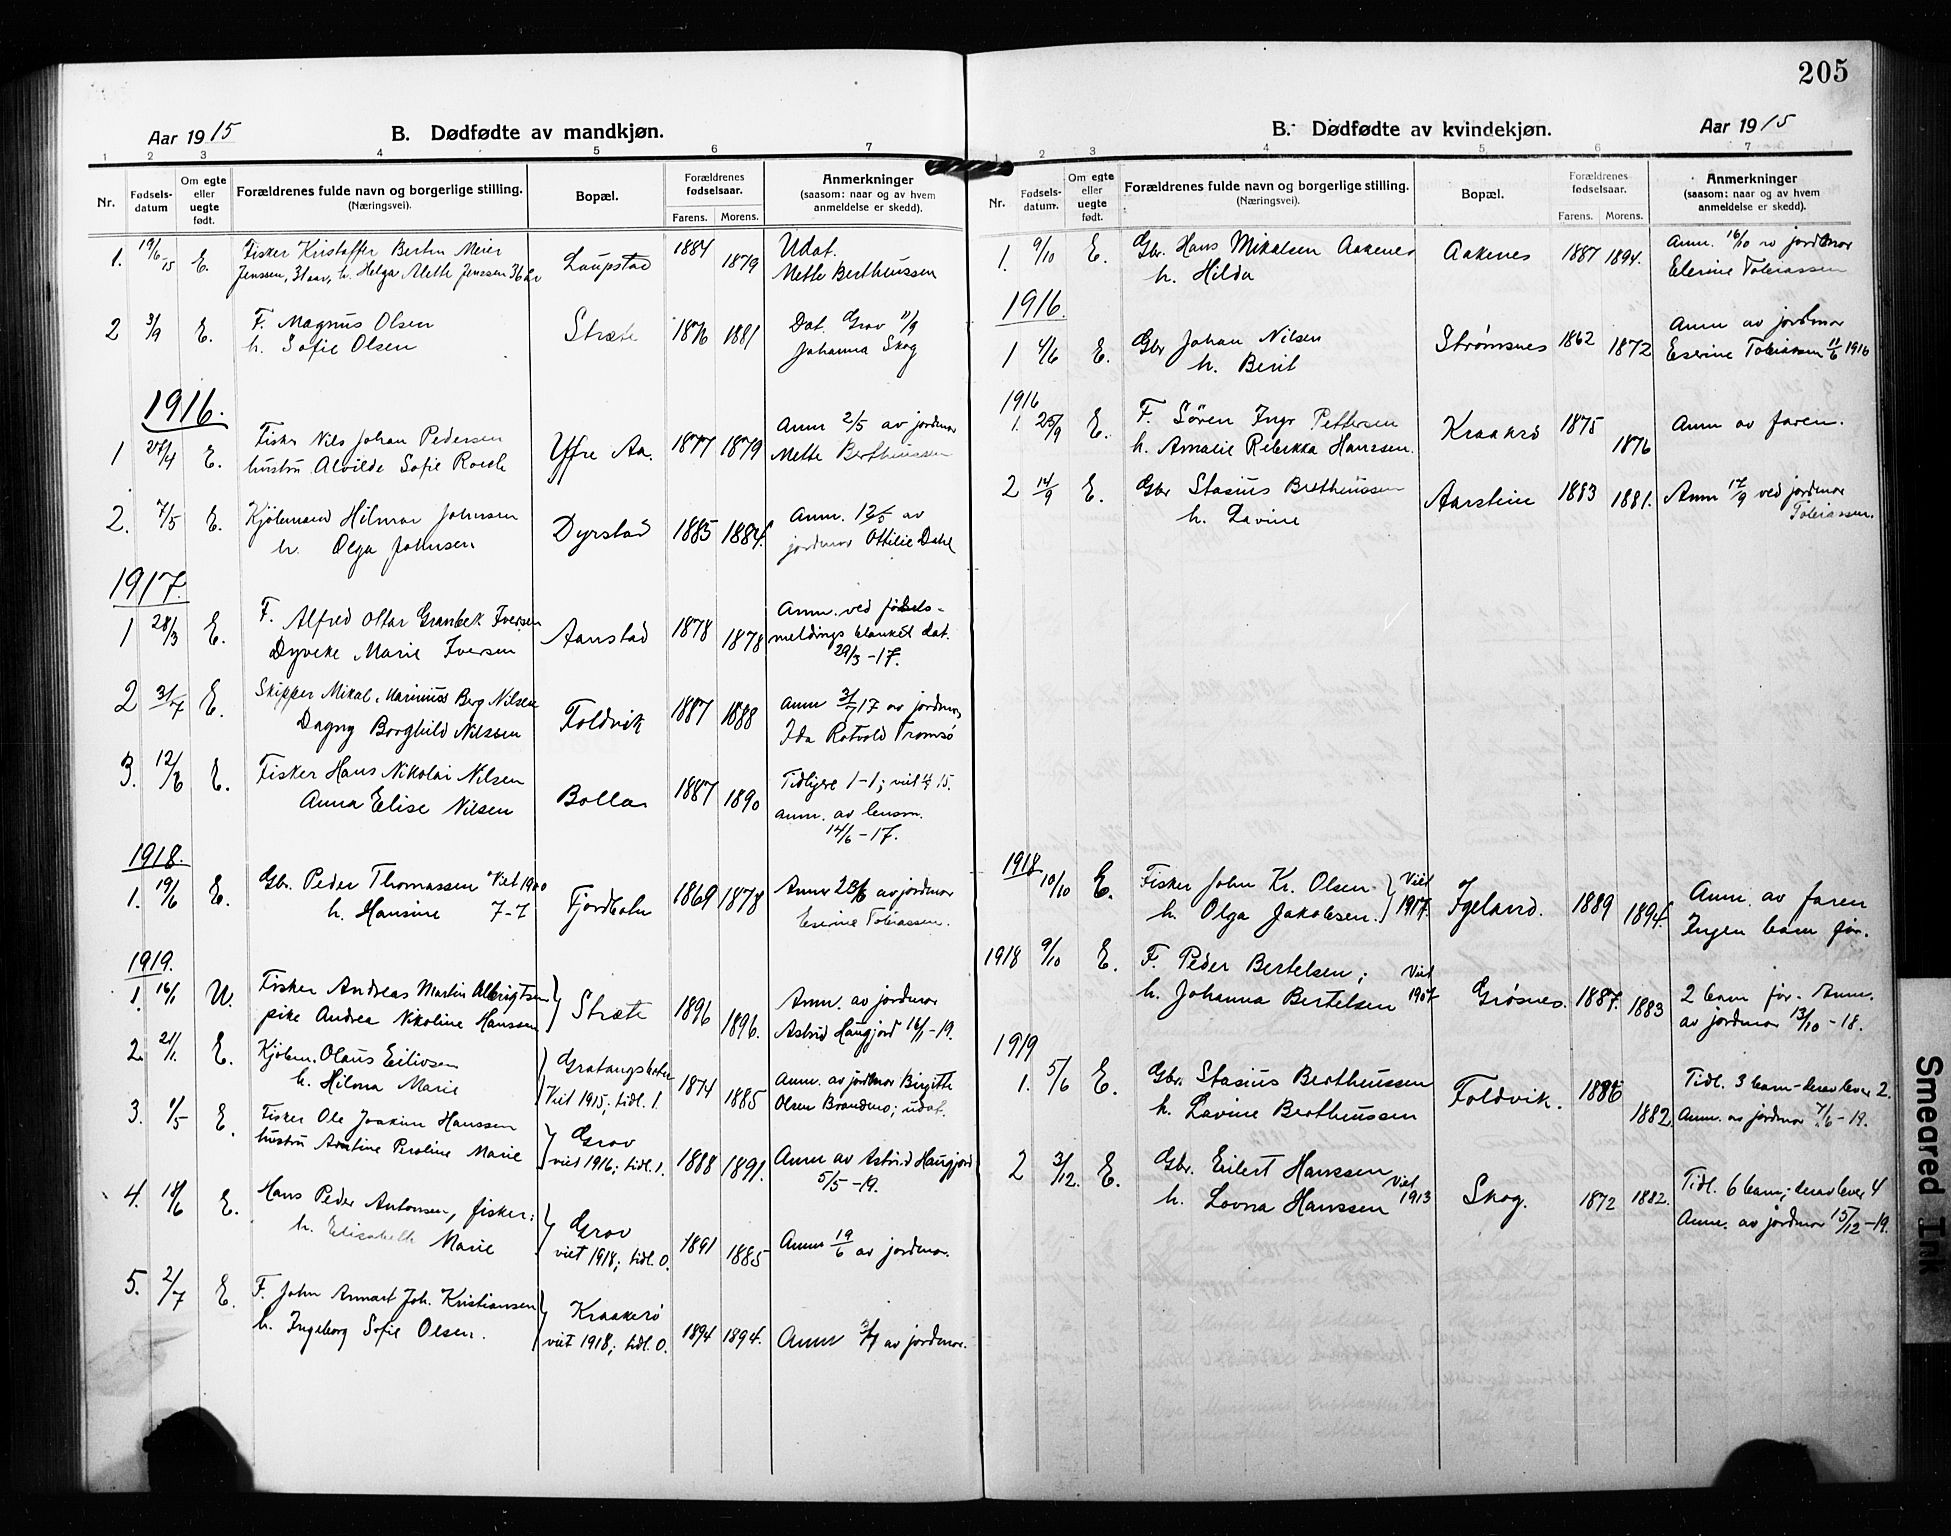 205
Aar 1915
B. Dødfødte av mandkjøn.
1 2 3 4 5 6 7
Nr.
Fødsels-
datum
Om egte
eller
uegte
født.
Forældrenes fulde navn og borgerlige stilling.
(Næringsvei).
Bopæl.
Forældrenes
fødselsaar.
Farens. Morens.
Anmerkninger
(saasom: naar og av hvem
anmeldelse er skedd).
1. 19/6 15 E. Fisker Kristoffer Bertin Meier Laupstad 1884 1879 Udat.
Jenssen, 31 aar, h. Helga Mette Jenssen 36 Mette Bertheussen
2 3/9 E. F. Magnus Olsen Stræte 1876 1881 Dat. Grov 11/9
h. Sofie Olsen Johanna Skog
1916.
1 27/4 E. Fisker Nils Johan Pedersen Yttre Aa. 1877 1879 Anm 2/5 av jordmor
hustru Alvilde Sofie Mette Bertheussen
2. 7/5 E. Kjøbmand Hilmar Johnsen Dyrstad 1885 1884. Anm. 12/5 av
h. Olga Johnsen jordmor Ottilie Dahl
1917.
1 28/3 E. F. Alfred Ottar Granbek Iversen Aanstad 1878 1878 Anm. ved fødsels-
Dyveke Marie Iversen meldings blanket dat.
29/3-17.
2 3/7 E. Skipper Mikal Marinius Berg Nilsen Foldvik 1887 1888 Anm 3/7 17 av jordmor
Dagny Borghild Nilssen Ida Rotvold Tromsø
3. 12/6 E. Fisker Hans Nikolai Nilsen Bolla 1887 1890 Tidligere 1-1; viet 15.
Anna Elise Nilsen anm. av lensm.
14/6-17.
1918.
1. 19/6 E. Gbr. Peder Thomassen Viet 1900 Fjordbotn 1869 1878 Anm 28/6 av jordmor
h. Hansine 7-7 Eserine Tobiassen.
1919.
1. 16/1 U. Fisker Andreas Martin Albrigtsen Stræte 1896 1896. Anm. av jordmor
pike Andrea Nikoline Hanssen Astrid Haugjord 16/1-19.
2. 21/1. E. Kjøbm. Olaus Eilivsen Gratangsbotn 1874 1885 Anm. av jordmor Birgitte
h. Hilma Marie Viet 1915; tidl. 1. Olsen Brandmo; udat.
3. 1/5 E. Fisker Ole Joakim Hanssen Grov 1888 1891. Anm av Astrid Haugjord
hustru Peroline Marie viet 1916; tidl. 1. 5/5-19.
4. 18/6 E. Hans Peder Antonsen, fisker; Grov 1891 1885 Anm 19/6 av jordmor.
h. Elisabeth Marie viet 1918; tidl. 0.
5. 2/7 E. F. John Annart Joh. Kristiansen Kraakerø 1894 1894. Anm 3/7 av jordmor.
h. Ingeborg Sofie Olsen. viet 1918; tidl. 0.
B. Dødfødte av kvindekjøn.
Aar 1915
1 2 3 4 5 6 7
Nr.
Fødsels-
datum.
Om egte
eller
uegte
født.
Forældrenes fulde navn og borgerlige stilling.
(Næringsvei).
Bopæl.
Forældrenes
fødselsaar.
Farens. Morens.
Anmerkninger
(saasom: naar og av hvem
anmeldelse er skedd).
1. 9/10 E. Gbr. Hans Mikalsen Aakenes Aakenes 1887 1894. Anm. 16/10 av jordmor
h. Hilda Eserine Tobiassen
1916.
1 4/6 E. Gbr Johan Nilsen Strømsnes 1862 1872 Anm av jordmor
h. Berit Eserine Tobiassen 11/6 1916
1916
1. 25/9 E. F. Søren Ingv Pettersen Kraakrø 1875 1876 Anm av faren.
h. Amalie Rebekka Hanssen.
2 14/9 E. Gbr Stasius Bertheussen Aarstein 1883 1881. Anm 17/9 ved jordmor
h. Lavine Tobiassen.
1918
10/10 E. Fisker John Kr. Olsen Viet Igeland. 1889 1894. Anm. av faren
h. Olga Jakobsen. 1917. Ingen barn før.
1918 9/10 E. F. Peder Bertelsen; Viet Grøsnes. 1887. 1883 2 barn før. Anm.
h. Johanna Bertelsen 1907 av jordmor 13/10-18.
1919
1. 5/6 E. Gbr. Stasius Bertheussen Foldvik. 1886 1882 Tidl. 3 barn-derav lever 2.
h. Lavine Bertheussen Anm. av jordmor 7/6-19.
2 3/12. E. Gbr. Eilert Hanssen Viet Skog. 1872 1882. Tidl. 6 barn; derav lever 4
h. Lovna Hanssen 1913 Anm. av jordmor 15/12-19.
Smeared Ink